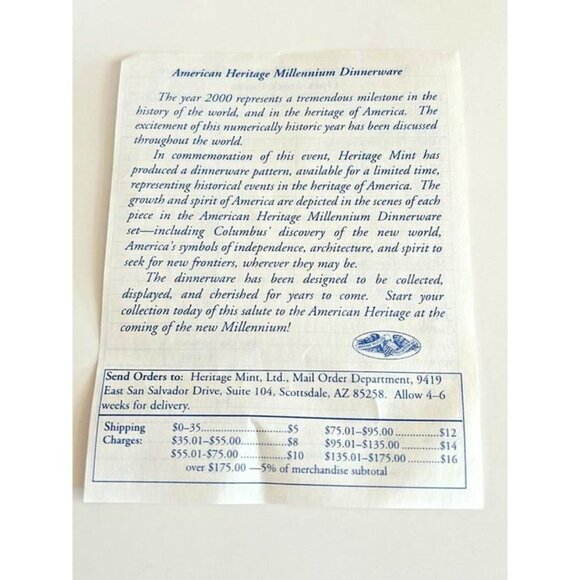 American Heritage Millennium Dinnerware
The year 2000 represents a tremendous milestone in the
history of the world, and in the heritage of America. The
excitement of this numerically historic year has been discussed
throughout the world.
In commemoration of this event, Heritage Mint has
produced a dinnerware pattern, available for a limited time,
representing historical events in the heritage of America. The
growth and spirit of America are depicted in the scenes of each
piece in the American Heritage Millennium Dinnerware
set—including Columbus' discovery of the new world,
America's symbols of independence, architecture, and spirit to
seek for new frontiers, wherever they may be.
The dinnerware has been designed to be collected,
displayed, and cherished for years to come. Start your
collection today of this salute to the American Heritage at the
coming of the new Millennium!
Send Orders to: Heritage Mint, Ltd., Mail Order Department, 9419
East San Salvador Drive, Suite 104, Scottsdale, AZ 85258. Allow 4–6
weeks for delivery.
Shipping $0–35..............................$5 $75.01–$95.00..............$12
Charges: $35.01–$55.00................$8 $95.01–$135.00............$14
$55.01-$75.00................$10 $135.01–$175.00..........$16
over $175.00 —5% of merchandise subtotal